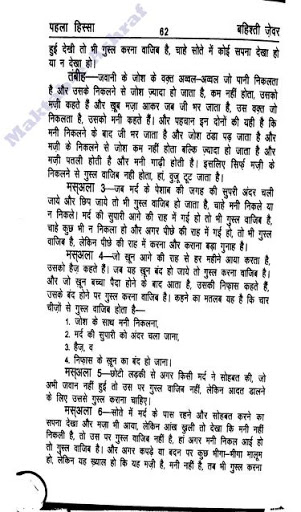 पहला हिस्सा 62 बहिश्ती ज़ेवर
हुई देखी तो भी गुस्ल करना वाजिब है, चाहे सोते में कोई सपना देखा हो
या न देखा हो।
तंबीह—जवानी के जोश के वक़्त अव्वल-अव्वल जो पानी निकलता
है और उसके निकलने से जोश ज़्यादा हो जाता है, कम नहीं होता, उसको
मज़ी कहते हैं और खूब मज़ा आकर जब जी भर जाता है, उस वक़्त जो
निकलता है, उसको मनी कहते हैं। और पहचान इन दोनों की यही है कि
मनी निकलने के बाद जी भर जाता है और जोश ठंडा पड़ जाता है और
मज़ी के निकलने से जोश कम नहीं होता बल्कि ज़्यादा हो जाता है और
मज़ी पतली होती है और मनी गाढ़ी होती है। इसलिए सिर्फ़ मज़ी के
निकलने से गुस्ल वाजिब नहीं होता, हां, वुज़ू टूट जाता है।
मस्अला 3—जब मर्द के पेशाब की जगह की सुपारी अंदर चली
जाये और छिप जाये तो भी गुस्ल वाजिब हो जाता है, चाहे मनी निकले या
न निकले। मर्द की सुपारी आगे की राह में गई हो तो भी गुस्ल वाजिब है,
चाहे कुछ भी न निकला हो और अगर पीछे की राह में गई हो, तो भी गुस्ल
वाजिब है, लेकिन पीछे की राह में करना और कराना बड़ा गुनाह है।
मस्अला 4—जो खून आगे की राह से हर महीने आया करता है,
उसको हैज़ कहते हैं। जब यह खून बंद हो जाये तो गुस्ल करना वाजिब है।
और जो खून बच्चा पैदा होने के बाद आता है, उसकी निफ़ास कहते हैं,
उसके बंद होने पर गुस्ल करना वाजिब है। कहने का मतलब यह है कि चार
चीज़ों से गुस्ल वाजिब होता है—
1. जोश के साथ मनी निकलना,
2. मर्द की सुपारी को अंदर चला जाना,
3. हैज़, व
4. निफ़ास के खून का बंद हो जाना।
मस्अला 5—छोटी लड़की से अगर किसी मर्द ने सोहबत की, जो
अभी जवान नहीं हुई तो उस पर गुस्ल वाजिब नहीं, लेकिन आदत डालने
के लिए उससे गुस्ल कराना चाहिए।
मस्अला 6—सोते में मर्द के पास रहने और सोहबत करने का
सपना देखा और मज़ा भी आया, लेकिन आंख खुली तो देखा कि मनी नहीं
निकली है, तो उस पर गुस्ल वाजिब नहीं है, हां अगर मनी निकल आई हो
तो गुस्ल वाजिब है। और अगर कपड़े या बदन पर कुछ भीगा-भीगा मालूम
हो, लेकिन यह ख्याल हो कि यह मज़ी है, मनी नहीं है, तब भी गुस्ल करना